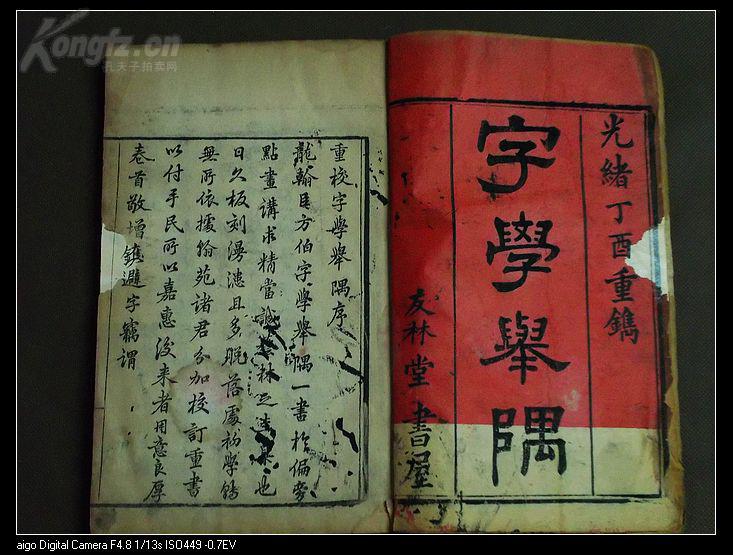 Kongfz.cn
孔夫子拍卖网
光緒丁酉重鐫
字學舉隅
友林堂書屋
重校字學舉隅序
龍翰臣方伯字學舉隅一書於偏旁
點畫講求精當誠 林之 也
日久板刻漫漶且多脫落處初學皆
無所依據翰苑諸君分加校訂重書
以付手民所以嘉惠後來者用意良厚
卷首敬增 避字竊謂
aigo Digital Camera F4.8 1/13s ISO449 -0.7EV